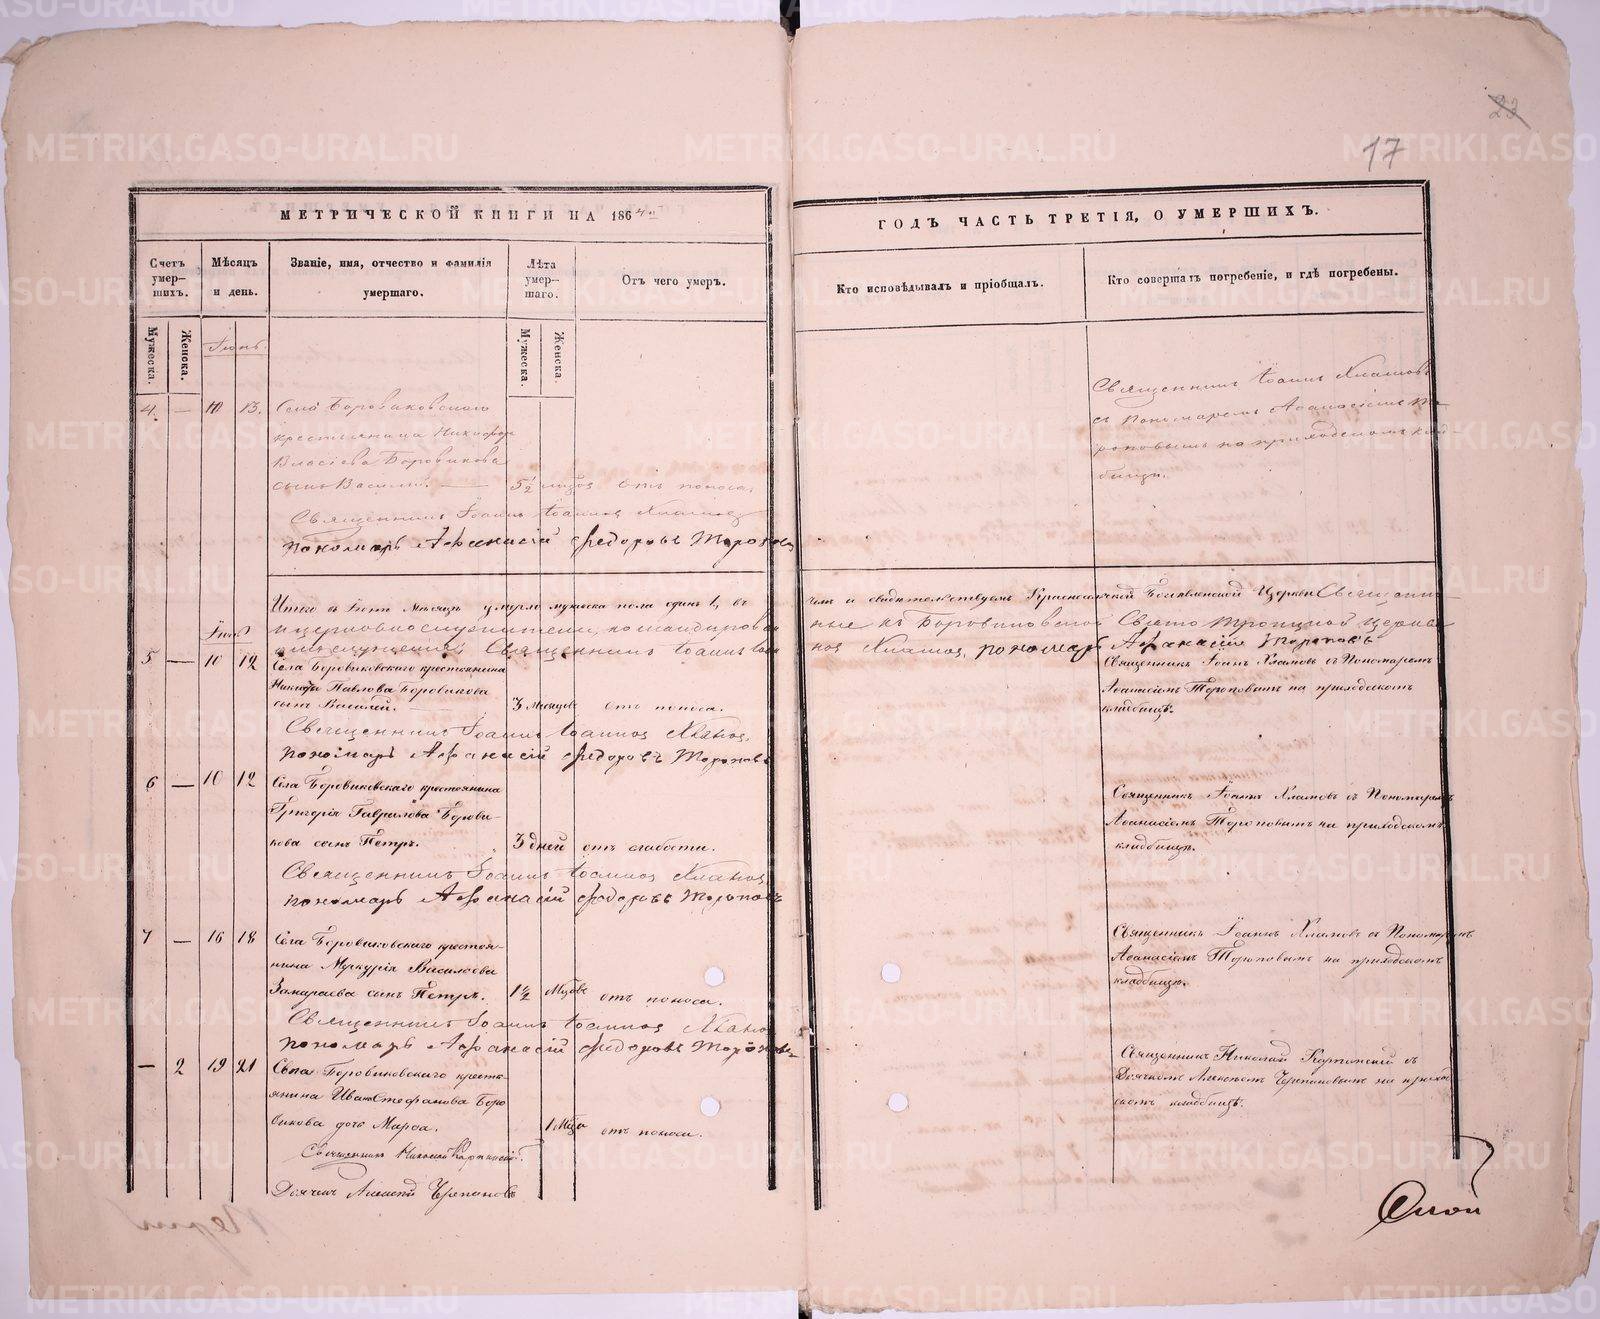 23
17
МЕТРИЧЕСКОЙ КНИГИ НА 1864й
ГОДЪ ЧАСТЬ ТРЕТІЯ, О УМЕРШИХЪ.
Счетъ умер-шихъ.
Мѣсяцъ и день.
Званіе, имя, отчество и фамилія умершаго.
Лѣта умер-шаго.
Отъ чего умеръ.
Кто исповѣдывалъ и пріобщалъ.
Кто совершалъ погребеніе, и гдѣ погребены.
Мужеска.
Женска.
Мужеска.
Женска.
4. — 10 13. Села Боровиковскаго
крестьянина Никифора
Власіева Боровикова
сынъ Василій. — 5½ отъ поноса.
Священникъ Іоаннъ Хламовъ
съ Пономаремъ Аѳанасіемъ То-
роповымъ на приходскомъ клад-
бищѣ.
Священникъ Іоаннъ Іоанновъ Хламовъ
пономарь Афанасій Федоровъ Тороповъ
Итого въ Мѣсяцѣ умерло мужеска пола одинъ 1, въ
чемъ и свидѣтельствуемъ Богоявленской Церкви Священно
и церковнослужители, командирован
ные къ Боровиковской Свято Троицкой церкви
Священникъ Іоаннъ Іоан
новъ Хламовъ, пономарь Афанасій Тороповъ
5 — 10 12 Села Боровиковскаго крестьянина
Никиты Павлова Боровикова
сынъ Василій. 3 мѣсяцовъ отъ поноса.
Священникъ Іоаннъ Хламовъ съ Пономаремъ
Аѳанасіемъ Тороповымъ на приходскомъ
кладбищѣ.
Священникъ Іоаннъ Іоанновъ Хламовъ.
пономарь Афанасій Федоровъ Тороповъ
6 — 10 12 Села Боровиковскаго крестьянина
Григорія Гаврилова Борови-
кова сынъ Петръ. 3 дней отъ слабости.
Священникъ Іоаннъ Хламовъ съ Пономаремъ
Аѳанасіемъ Тороповымъ на приходскомъ
кладбищѣ.
Священникъ Іоаннъ Іоанновъ Хламовъ
пономарь Афанасій Федоровъ Тороповъ
7 — 16 18 Села Боровиковскаго крестья-
нина Меркурія Васильева
сынъ Петръ. 1½ Мцовъ отъ поноса.
Священникъ Іоаннъ Хламовъ съ Пономаремъ
Аѳанасіемъ Тороповымъ на приходскомъ
кладбищѣ.
Священникъ Іоаннъ Іоанновъ Хламовъ
пономарь Афанасій Федоровъ Тороповъ
— 2 19 21 Села Боровиковскаго кресть-
янина Ивана Стефанова Боро
викова дочь Марѳа. 1 Мца отъ поноса.
Священникъ Николай съ
Дьячкомъ Алексѣемъ Черепановымъ на приход
скомъ кладбищѣ.
Священникъ Николай
Дьячекъ Алексѣй Черепановъ
METRIKI.GASO-URAL.RU